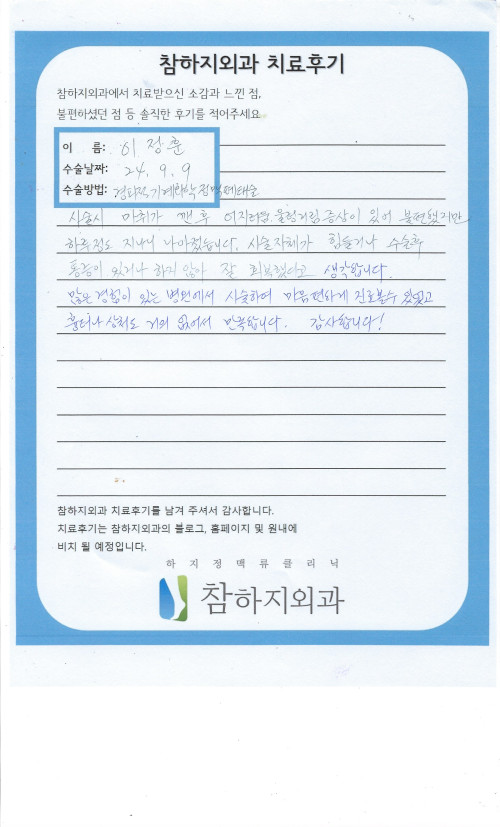 참하지외과 치료후기
참하지외과에서 치료받으신 소감과 느낀 점,
불편하셨던 점 등 솔직한 후기를 적어주세요
이 름: 이정훈
수술날짜: 24. 9. 9
수술방법: 경피적기계화학정맥폐색술
시술시 마취가 깬 후 어지러움 울렁거림 증상이 있어 불편했지만
하루정도 지나니 나아졌습니다. 시술자체가 힘들거나 수술후
통증이 있거나 하지 않아 잘 회복했다고 생각합니다.
많은 경험이 있는 병원에서 시술하여 마음편하게 진료볼수 있었고
흉터나 상처도 거의 없어서 만족합니다. 감사합니다!
참하지외과 치료후기를 남겨 주셔서 감사합니다.
치료후기는 참하지외과의 블로그, 홈페이지 및 원내에
비치 될 예정입니다.
하지정맥류클리닉
참하지외과